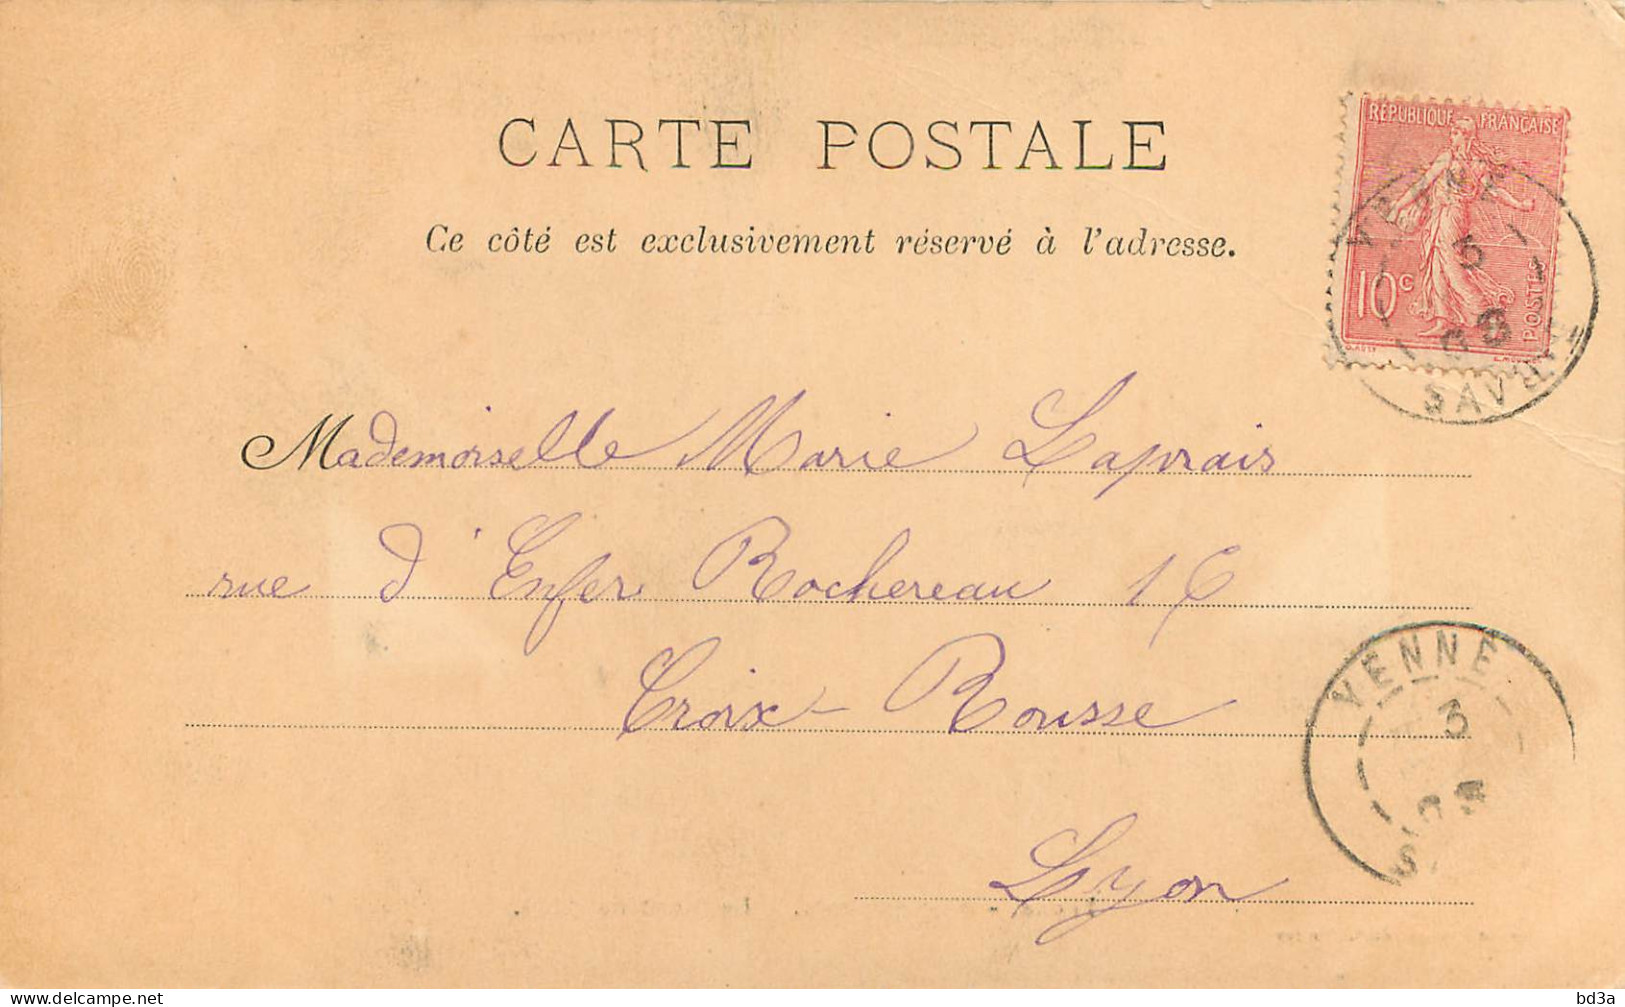 CARTE POSTALE
Ce côté est exclusivement réservé à l'adresse.
RÉPUBLIQUE FRANÇAISE
10 c
POSTES
3
03
SAVOIE
Mademoiselle Marie Laprais
rue d'Enfer Rochereau 16
Croix-Rousse
Lyon
YENNE
3
03
delcampe.net
bd3a